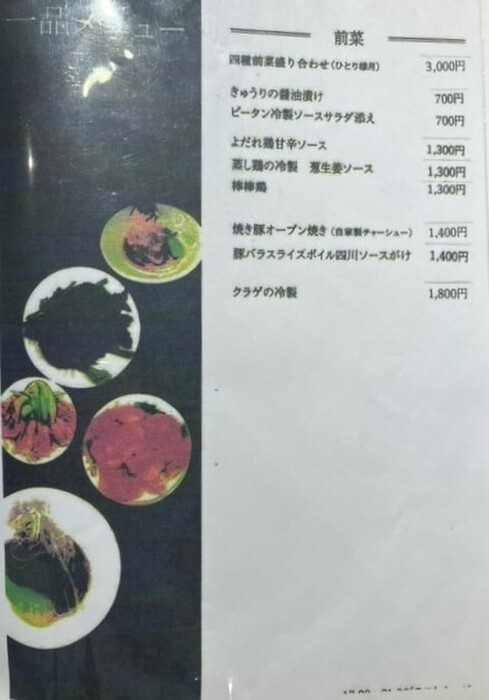 一品メニュー
前菜
四種前菜盛り合わせ（ひとり様用） 3,000円
きゅうりの醤油漬け 700円
ピータン冷製ソースサラダ添え 700円
よだれ鶏甘辛ソース 1,300円
蒸し鶏の冷製 葱生姜ソース 1,300円
棒棒鶏 1,300円
焼き豚オーブン焼き（自家製チャーシュー） 1,400円
豚バラスライズボイル四川ソースがけ 1,400円
クラゲの冷製 1,800円